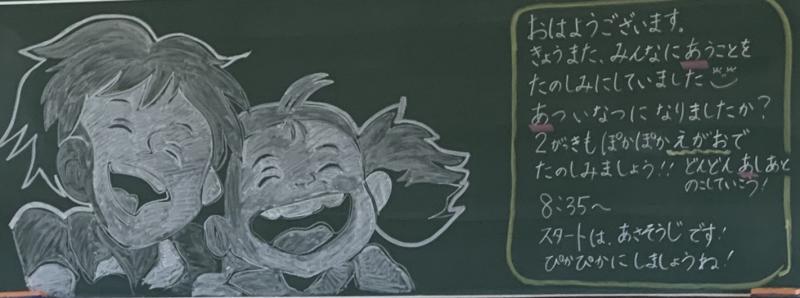 おはようございます。
きょうまた、みんなにあうことを
たのしみにしていました
あついなつになりましたか?
2がっきもぽかぽかえがおで
たのしみましょう!!
どんどんあしあと
のこしていこう!
8:35〜
スタートは、あさそうじです!
ぴかぴかにしましょうね!